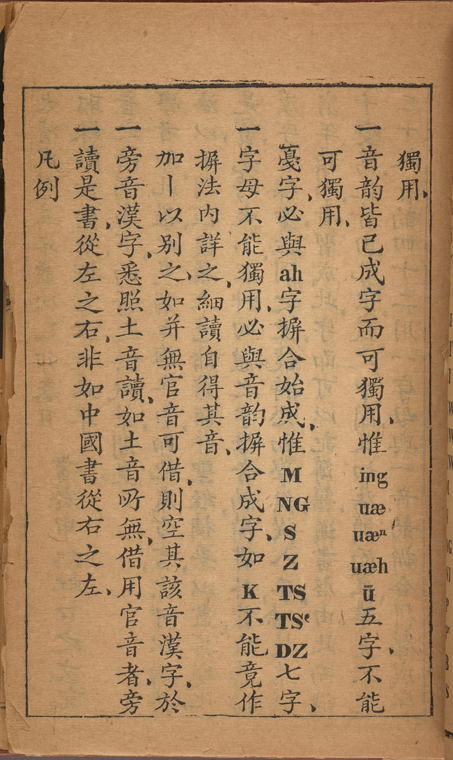 凡例
一讀是書、從左之右、非如中國書從右之左、
一旁音漢字、悉照土音讀、如土音所無、借用官音者、旁
加丨以別之、如并無官音可借、則空其該音漢字、於
摒法內詳之、細讀自得其音、
一字母不能獨用、必與音韵摒合成字、如 K 不能竟作
戞字、必與 ah 字摒合始成、惟 M NG S Z TS TSʻ DZ 七字、
可獨用、
一音韵皆已成字而可獨用、惟 ing uæ uæⁿ uæh ū 五字、不能
獨用、